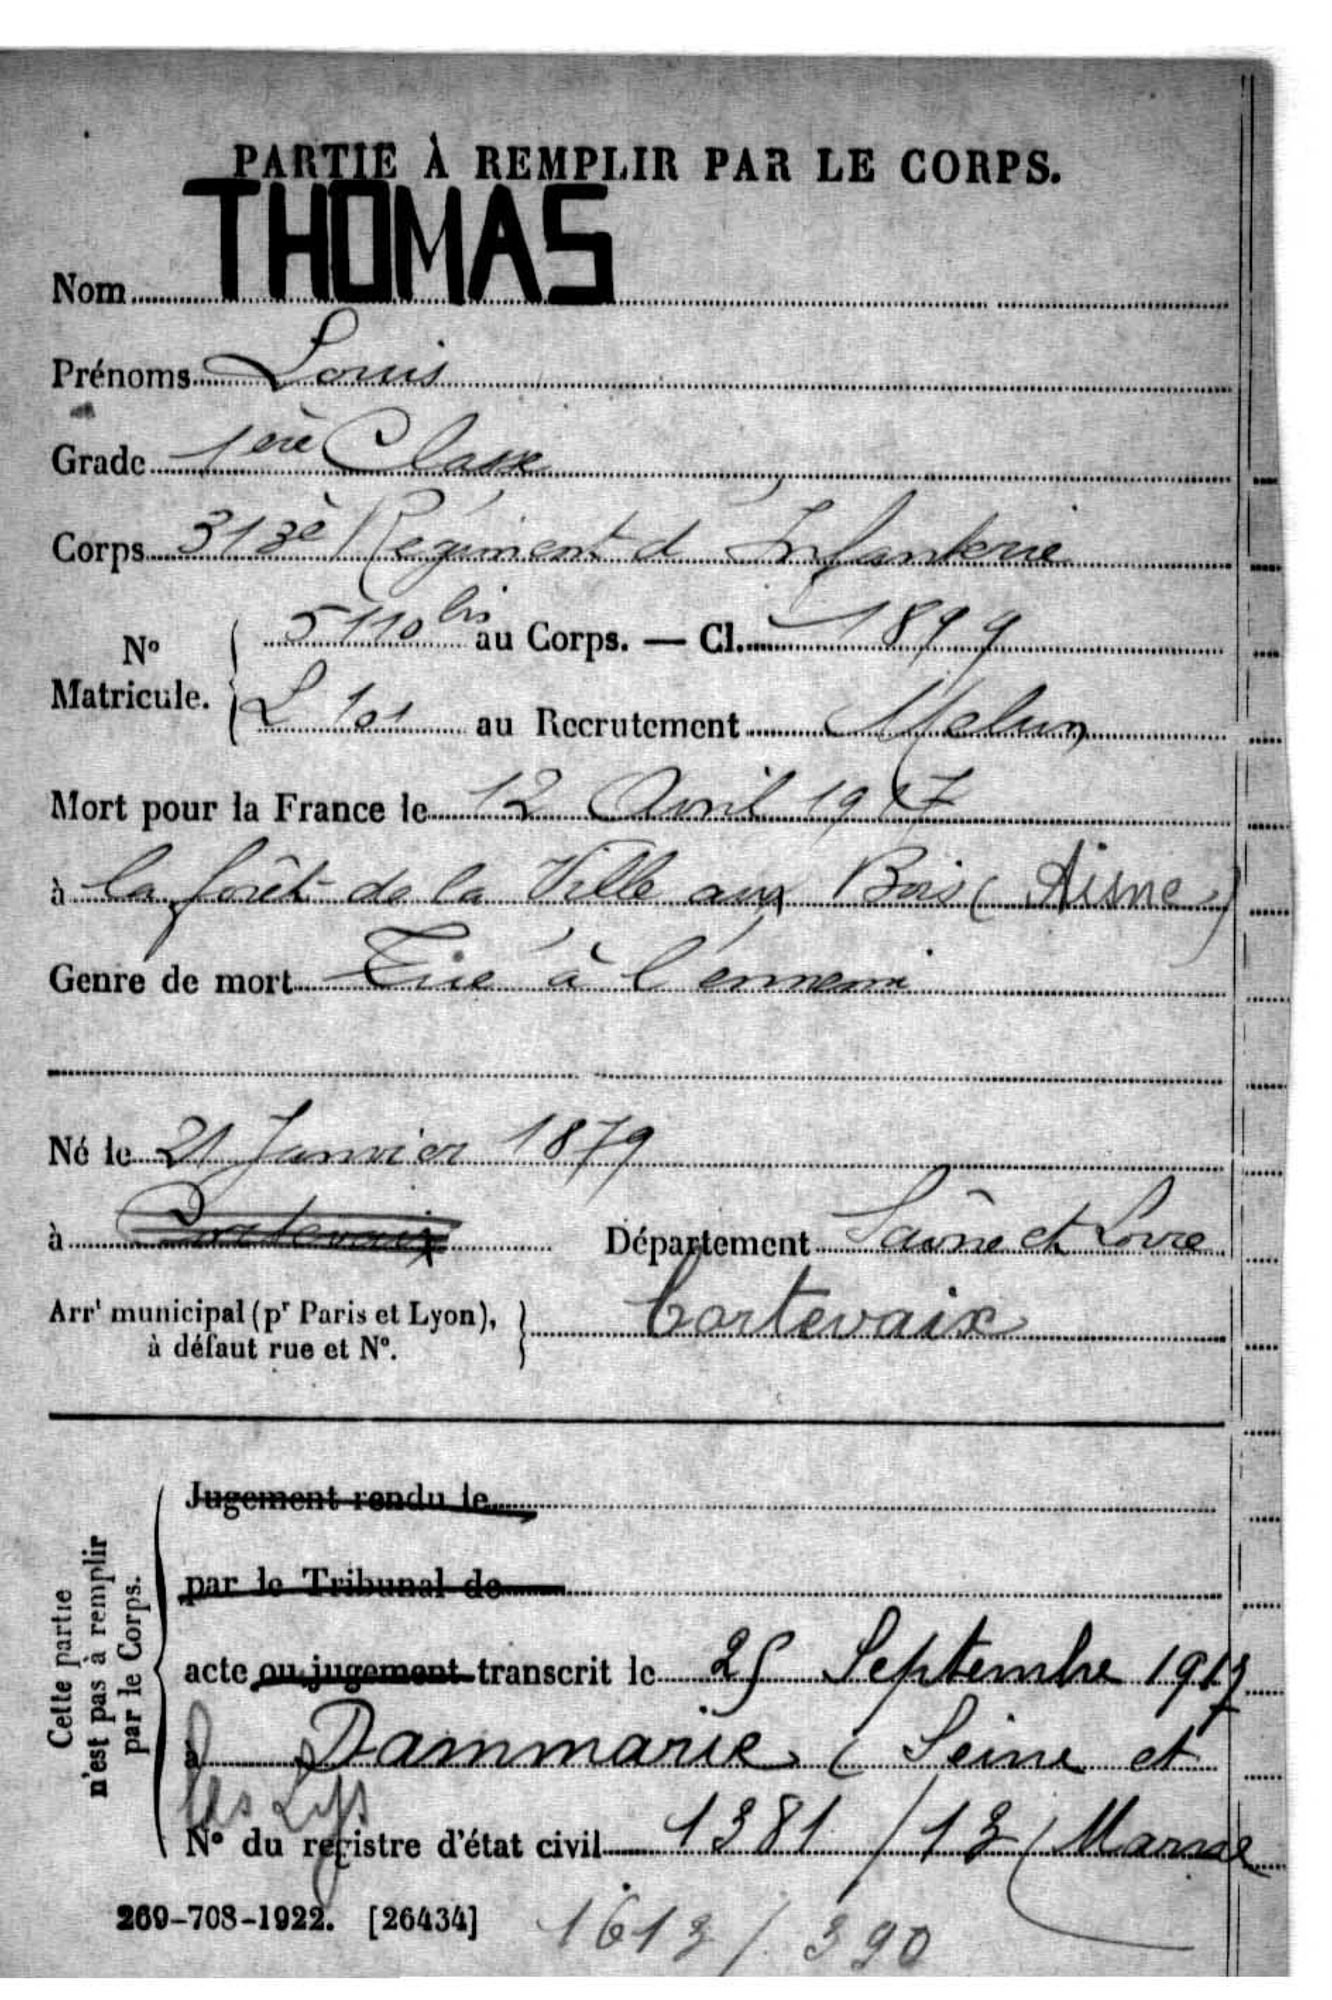 PARTIE À REMPLIR PAR LE CORPS.
Nom THOMAS
Prénoms Louis
Grade 1ère Classe
Corps 313è Régiment d'Infanterie
N° Matricule. 5110 bis au Corps. — Cl. 1899
L 101 au Recrutement Melun
Mort pour la France le 12 Avril 1917
à la forêt de la Ville aux Bois (Aisne)
Genre de mort Tué à l'ennemi
Né le 21 Janvier 1879
à Cortevaix Département Saône et Loire
Arrt municipal (pr Paris et Lyon),
à défaut rue et N°. Cortevaix
Cette partie
n'est pas à remplir
par le Corps.
Jugement rendu le
par le Tribunal de
acte ou jugement transcrit le 25 Septembre 1917
à Dammarie (Seine et
les Lys
N° du registre d'état civil 1381/13 Marne
269-708-1922. [26434] 1613/390